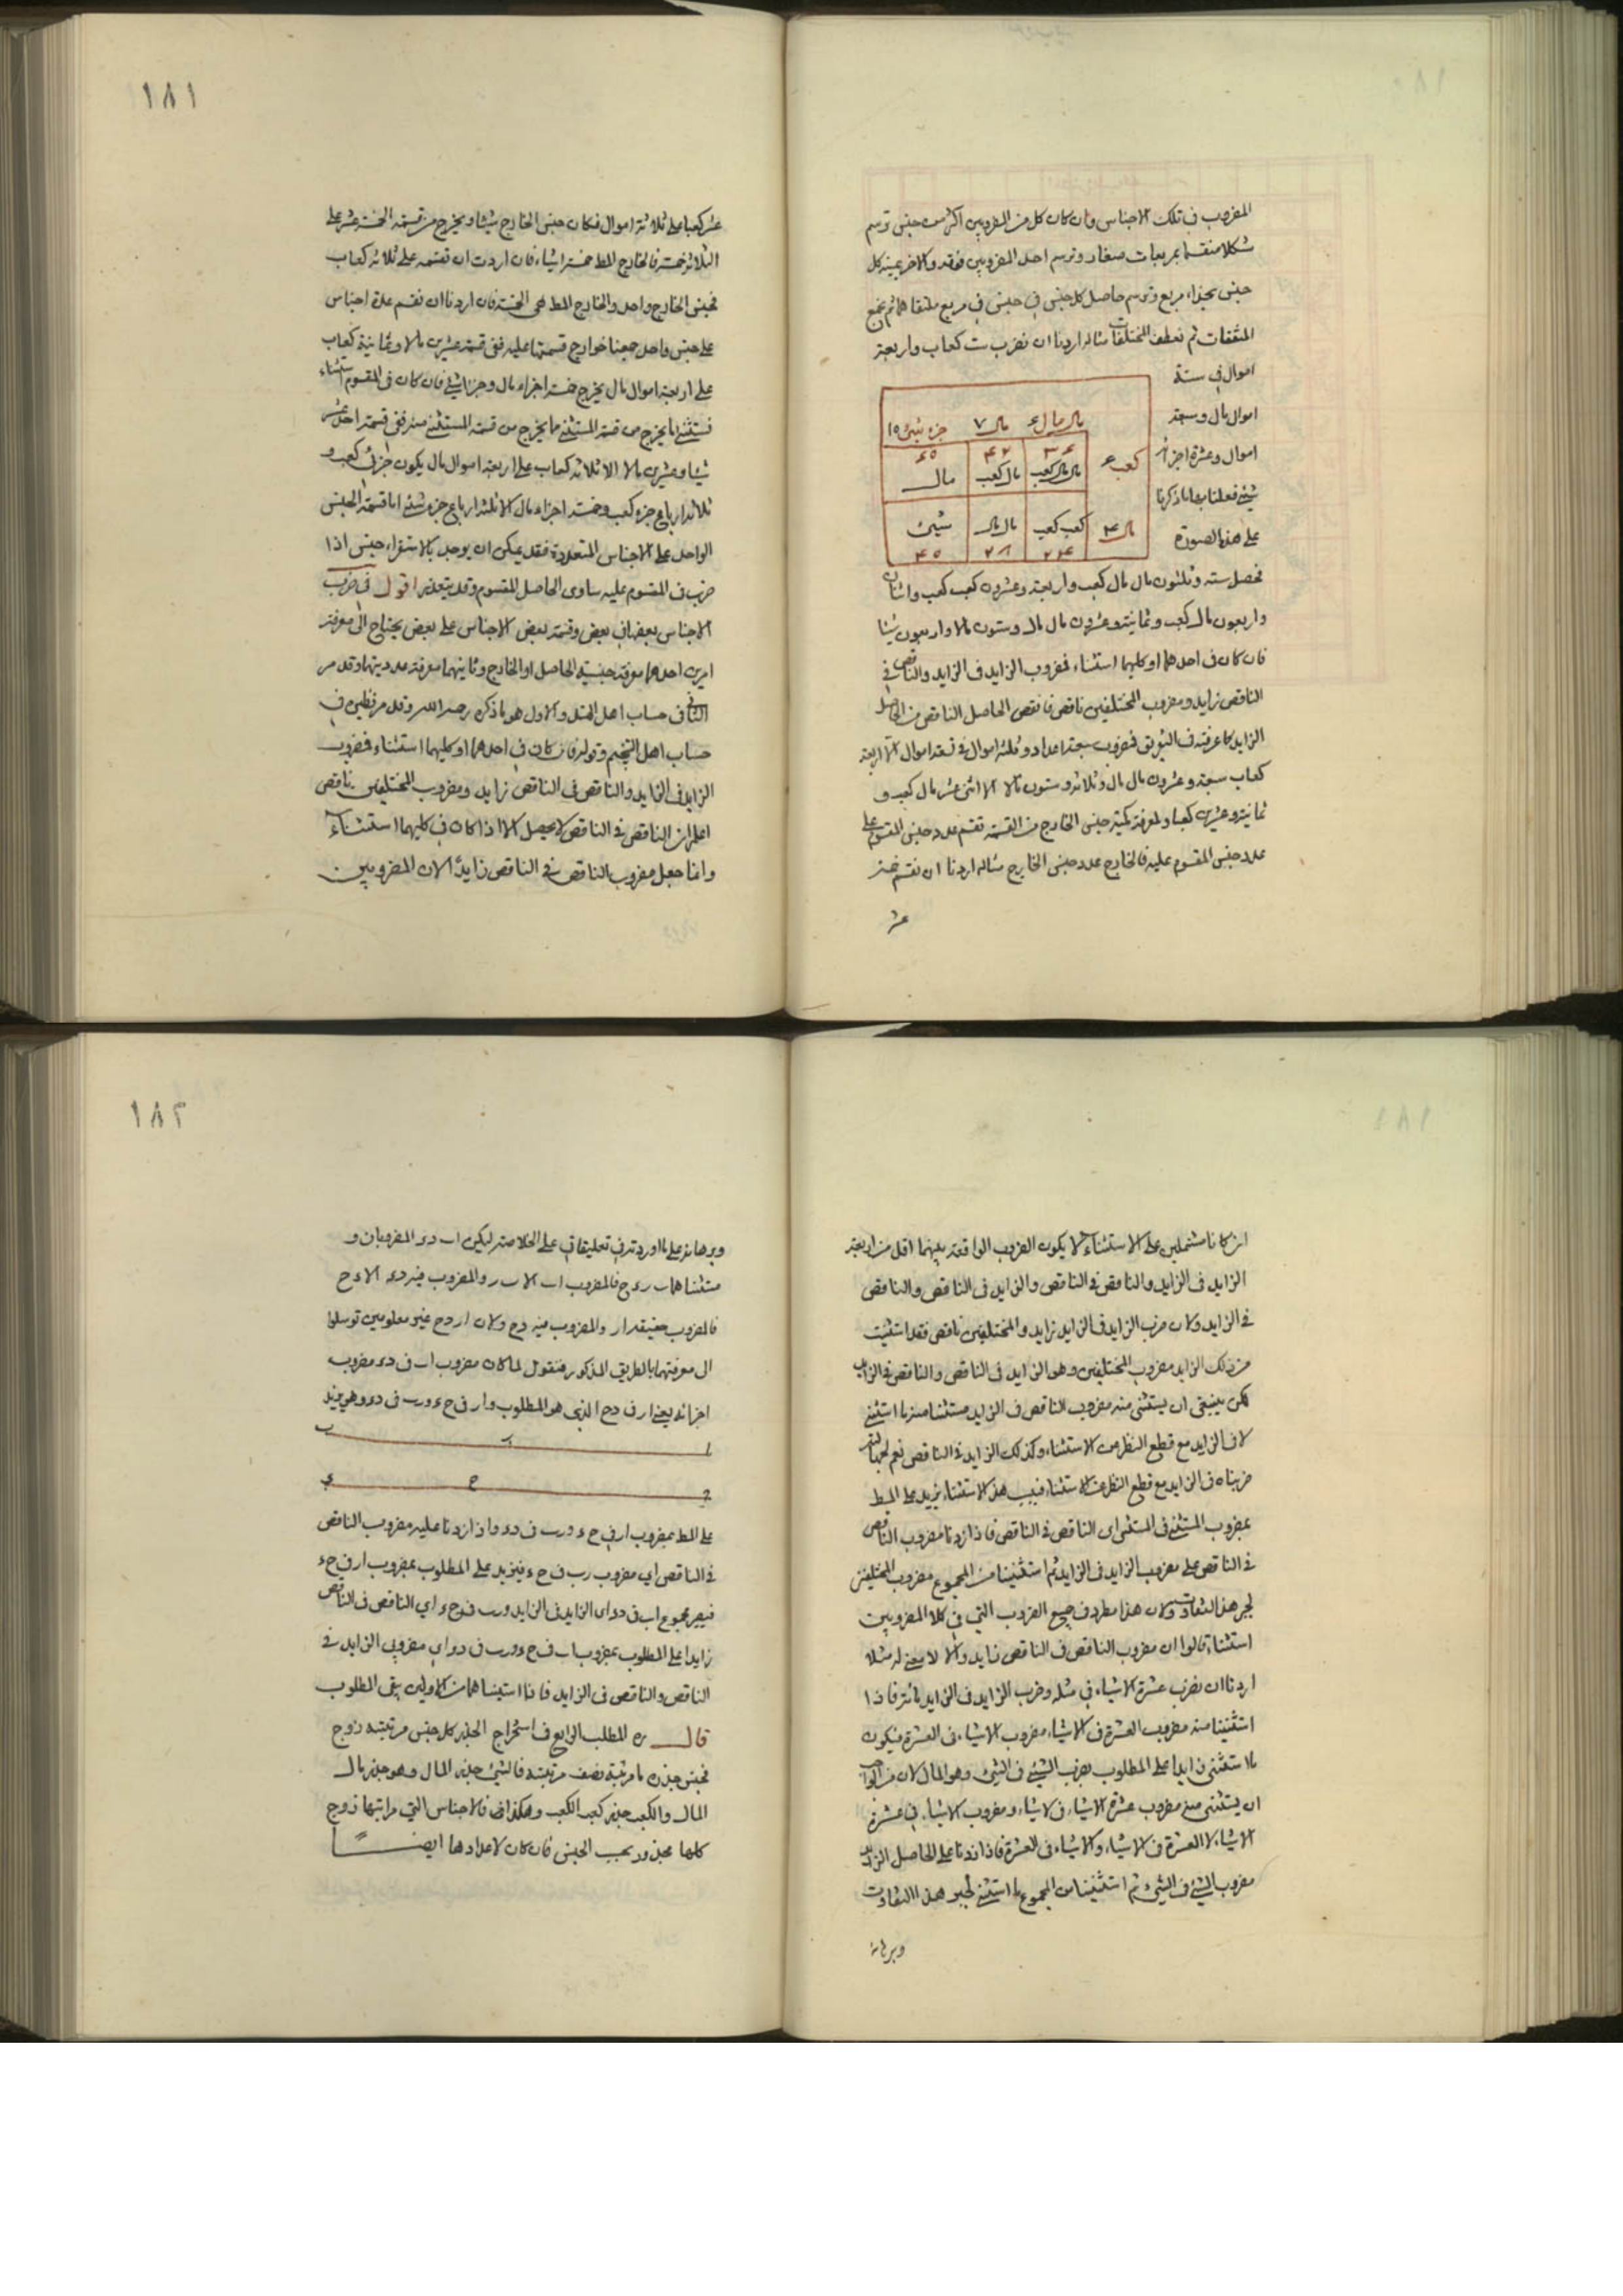 المضروب في تلك الاجناس وان كان كل من المضروبين اكثر من جنس ترسم
شكلا منقسما بمربعات صغار وترسم احد المضروبين فوقه والاخر يمينه كل
جنس بحذاء مربع وترسم حاصل كل جنس في جنس في مربع ملتقاهما ثم تجمع
المتفقات ثم تعطف المختلفات مثاله اردنا ان نضرب ست كعاب واربعة
اموال في ستة
اموال مال وسبعة
اموال وعشرة اجزاء
شيئ فعلنا بما ذكرنا
على هذه الصورة
مال مال ۶ مال ۷ جزء شيئ ۱۰
كعب ۶
۳۶ ۴۲ ۶۰
مال مال كعب مال كعب مال
مال ۴ كعب كعب مال مال شيئ
۲۴ ۲۸ ۴۰
فحصل ستة وثلثون مال مال كعب واربعة وعشرون كعب كعب واثنان
واربعون مال كعب وثمانية وعشرون مال مال وستون مالا واربعون شيئا
فان كان في احدهما او كليهما استثناء فمضروب الزايد في الزايد والناقص في
الناقص زايد ومضروب المختلفين ناقص فانقص الحاصل الناقص من الحاصل
الزايد كما عرفته في فمضروب سبعة اعداد وثلثة اموال في تسعة اموال الا اربعة
كعاب سبعة وعشرون مال مال وثلاثة وستون مالا الا اثني عشر مال كعب و
ثمانية وعشرين كعبا ولمعرفة كمية جنس الخارج من القسمة تقسم عدد جنس المقسوم على
عدد جنس المقسوم عليه فالخارج عدد جنس الخارج مثاله اردنا ان نقسم خمسة
عشر
۱۸۱
عشر كعبا على ثلاثة اموال فكان جنس الخارج شيئا ويخرج من قسمة الخمسة عشر على
الثلاثة خمسة فالخارج المط خمسة اشياء فان اردت ان تقسمه على ثلاثة كعاب
فجنس الخارج واحد والخارج المط هي الخمسة فان اردنا ان نقسم عدة اجناس
على جنس واحد جمعنا خوارج قسمتها عليه ففي قسمة عشرين مالا وثمانية كعاب
على اربعة اموال مال يخرج خمسة اجزاء مال وجزءا شيئ فان كان في المقسوم استثناء
نستثني ما يخرج من قسمة المستثنى مما يخرج من قسمة المستثنى منه ففي قسمة احد عشر
شيئا وعشرين مالا الا ثلاثة كعاب على اربعة اموال مال يكون جزئي كعب و
ثلاثة ارباع جزء كعب وخمسة اجزاء مال الا ثلثة ارباع جزء شيئ اما قسمة الجنس
الواحد على الاجناس المتعددة فقد يمكن ان يوجد بالاستقراء جنس اذا
ضرب في المقسوم عليه ساوى الحاصل المقسوم وقد يتعذر اقول في ضرب
الاجناس بعضها في بعض وقسمة بعض الاجناس على بعض يحتاج الى معرفة
امرين احدهما معرفة جنسية الحاصل او الخارج وثانيهما معرفة عدديتها وقد مر
الثاني في حساب اهل الهند والاول هو ما ذكره رحمه الله وقد مر نظيره في
حساب اهل التنجيم وقوله فان كان في احدهما او كليهما استثناء فمضروب
الزايد في الزايد والناقص في الناقص زايد ومضروب المختلفين ناقص
اعلم ان الناقص في الناقص لا يحصل الا اذا كان في كليهما استثناء
وانما جعل مضروب الناقص في الناقص زايدا لان المضروبين
ان كانا مشتملين على الاستثناء لا يكون الضروب الواقعة بينهما اقل من اربعة
الزايد في الزايد والناقص في الناقص والزايد في الناقص والناقص
في الزايد ولان ضرب الزايد في الزايد زايد والمختلفين ناقص فقد استثنيت
من ذلك الزايد مضروب المختلفين وهو الزايد في الناقص والناقص في الزايد
لكن ينبغي ان يستثنى منه مضروب الناقص في الزايد مستثنا منه ما استثنى
لا في الزايد مع قطع النظر عن الاستثناء وكذلك الزايد في الناقص نعم
ضربناه في الزايد مع قطع النظر عن الاستثناء فبسبب هذا الاستثناء يزيد على المط
بمضروب المستثنى في المستثنى اى الناقص في الناقص فاذا زدنا مضروب الناقص
في الناقص على مضروب الزايد في الزايد ثم استثنينا من المجموع مضروب المختلفين
لجبر هذا التفاوت ولان هذا مطرد في جميع الضروب التي في كلا المضروبين
استثناء قالوا ان مضروب الناقص في الناقص زايد والا لا معنى له مثلا
اردنا ان نضرب عشرة الا شيئا في مثله وضرب الزايد في الزايد مائة فاذا
استثنينا منه مضروب العشرة في الاشياء ومضروب الاشياء في العشرة فيكون
ما استثنى زايدا على المطلوب بضرب الشيئ في الشيئ وهو المال لان من الواجب
ان يستثنى منه مضروب عشرة الا شياء في لاشياء ومضروب الاشياء في عشرة
الاشياء لا العشرة في الاشياء والاشياء في العشرة فاذا زدنا على الحاصل الزايد
مضروب الشيئ في الشيئ ثم استثنينا من المجموع ما استثنى لجبر هذا التفاوت
وبرهانه
۱۸۲
وبرهانه على ما اوردته في تعليقاتي على الخلاصة ليكن اب دء المضروبان و
مستثناهما ب ر ء ح فالمضروب اب الا ب ر والمضروب فيه دء الا ء ح
فالمضروب حقيقة ار والمضروب فيه دح ولان ار دح غير معلومين توسلوا
الى معرفتهما بالطريق المذكور فنقول لما كان مضروب اب في دء مضروب
اجزائه يعني ار في دح الذي هو المطلوب وار في ح ء ورب في دء وهي يزيد
ا ر ب
د ح ء
على المط بمضروب ار في ح ء ورب في دء واذا زدنا عليه مضروب الناقص
في الناقص اي مضروب رب في ح ء فيزيد على المطلوب بمضروب ار في ح ء
فيصير مجموع اب في دء اى الزايد في الزايد ورب في ح ء اي الناقص في الناقص
زايدا على المطلوب بمضروب اب في ح ء ورب في دء اي مضروبي الزايد في
الناقص والناقص في الزايد فاذا استثنيناهما من الاولين بقى المطلوب
قال ره المطلب الرابع في استخراج الجذر كل جنس مرتبته زوج
فجنس جذره ما مرتبته نصف مرتبته فالشيئ جذر المال وهو جذر مال
المال والكعب جذر كعب الكعب وهكذا فالاجناس التي مراتبها زوج
كلها مجذور بحسب الجنس فان كان لاعدادها ايضا